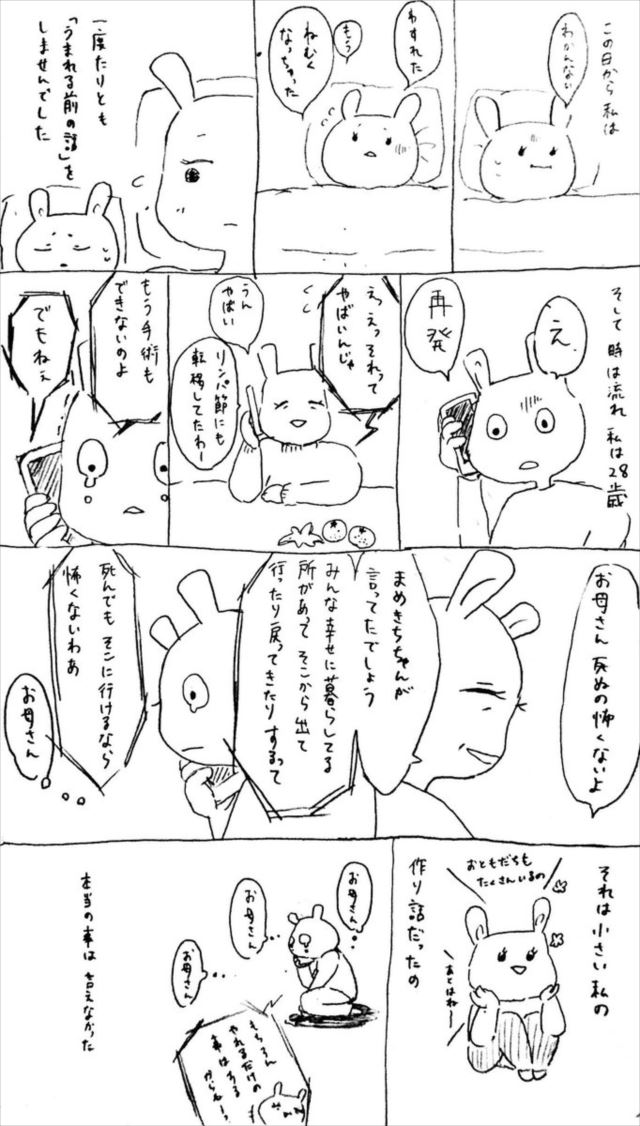 この日から私は
わかんない
わすれた
もう
ねむく
なっちゃった
一度たりとも
「うまれる前の話」を
しませんでした
そして時は流れ 私は28歳
え
再発
えっえっそれって
やばいんじゃ
うん
やばい
リンパ節にも
転移してたわー
もう手術も
できないのよ
でもねぇ
お母さん 死ぬの怖くないよ
まめきちちゃんが
言ってたでしょう
みんな幸せに暮らしてる
所があって そこから出て
行ったり戻ってきたりするって
死んでも そこに行けるなら
怖くないわぁ
お母さん
それは小さい私の
作り話だったの
おともだちも
たくさんいるの
あとはねー
お母さん
お母さん
お母さん
もちろん
やれるだけの
事はある
からねーっ
本当の事は 言えなかった